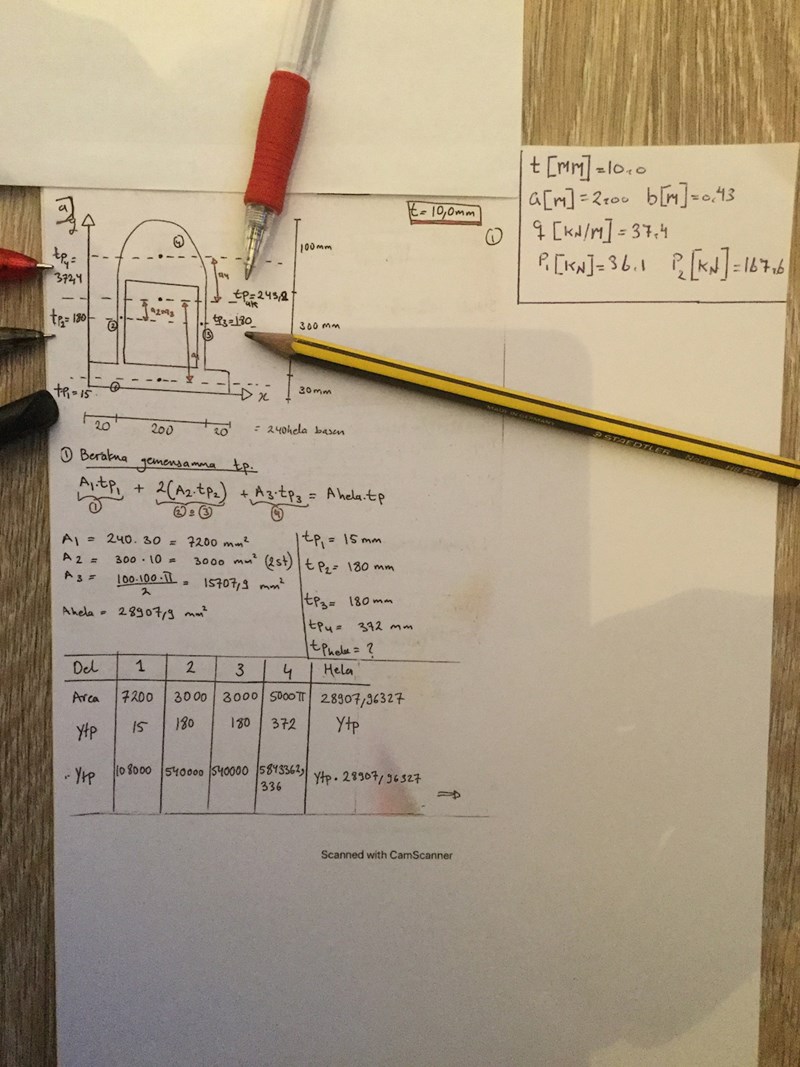 t [mm] = 10,0
a [m] = 2,00 b [m] = 0,43
q [kN/m] = 37,4
P₁ [kN] = 36,1 P₂ [kN] = 167,6
a)
t = 10,0mm
①
y
100 mm
④
tp₄ =
372,4
a₄
tp = 243,8
tp₂ = 180
②
③
tp₃ = 180
300 mm
①
tp₁ = 15
x
30 mm
20 200 20 = 240 hela basen
MADE IN GERMANY
STAEDTLER
① Beräkna gemensamma tp.
A₁·tp₁ + 2(A₂·tp₂) + A₃·tp₃ = Ahela·tp
① ② = ③ ④
A₁ = 240·30 = 7200 mm²
A₂ = 300·10 = 3000 mm² (2st)
A₃ = 100·100·π / 2 = 15707,9 mm²
Ahela = 28907,9 mm²
tp₁ = 15 mm
tp₂ = 180 mm
tp₃ = 180 mm
tp₄ = 372 mm
tp hela = ?
Del 1 2 3 4 Hela
Area 7200 3000 3000 5000π 28907,96327
Ytp 15 180 180 372 Ytp
· Ytp 108000 540000 540000 5843362,336 Ytp · 28907,96327 ⇒
Scanned with CamScanner